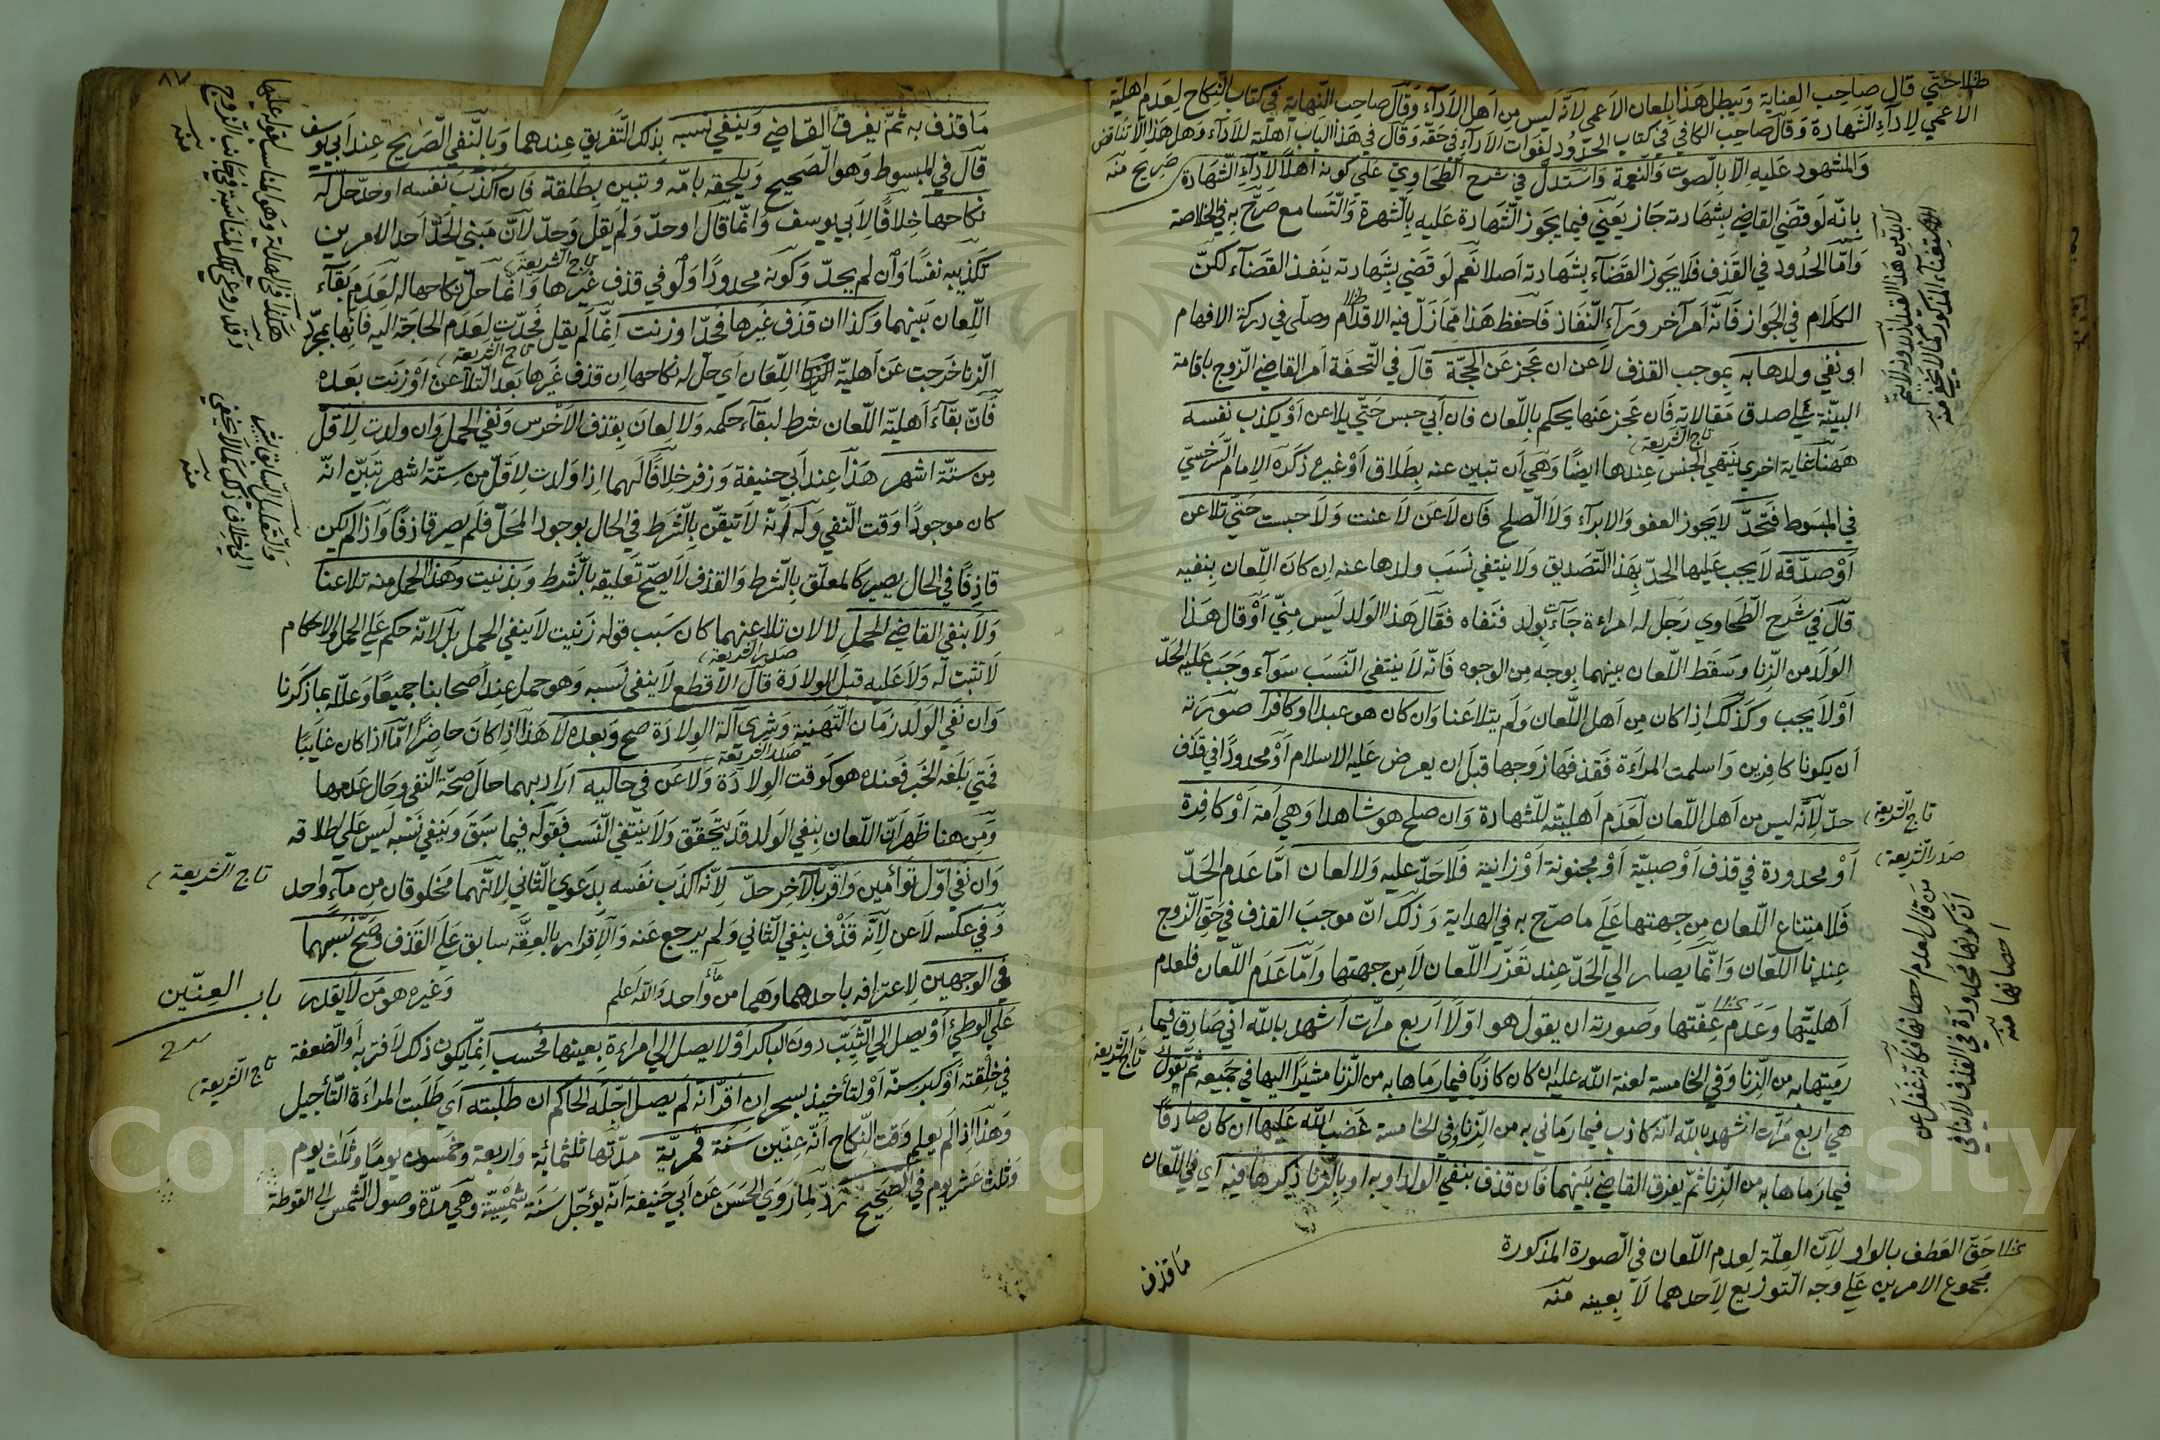 حتى قال صاحب العناية ويبطل هذا بلعان الاعمى لانه ليس من اهل الاداء وقال صاحب النهاية في كتاب النكاح لعدم اهلية
الاعمى لاداء الشهادة وقال صاحب الكافي في كتاب الحدود لفوات الاداء في حقه وقال في هذا الباب اهلية للاداء وهل هذا الا تناقض صريح منه
والمشهود عليه الا بالصوت والنغمة واستدل في شرح الطحاوي على كونه اهلا لاداء الشهادة
بانه لو قضى القاضي بشهادته جاز يعني فيما يجوز الشهادة عليه بالشهرة والتسامع صرح به في الخلاصة
واما المحدود في القذف فلا يجوز القضاء بشهادته اصلا نعم لو قضى بشهادته ينفذ القضاء لكن
الكلام في الجواز فانه امر آخر وراء النفاذ فاحفظ هذا مما زل فيه الاقدام وصلى في دركة الافهام
او نفى ولدها به بموجب القذف لاعن ان عجز عن الحجة قال في التحفة امر القاضي الزوج باقامة
البينة على صدق مقالته فان عجز عنها يحكم باللعان فان ابى حبس حتى يلاعن او يكذب نفسه
تاج الشريعة
ههنا غاية اخرى ينتهي الحبس عندها ايضا وهي ان تبين عنه بطلاق او غيره ذكره الامام السرخسي
في المبسوط فتحد لا يجوز العفو والابراء ولا الصلح فان لاعن لاعنت ولا حبست حتى تلاعن
او صدقه لا يجب عليها الحد بهذا التصديق ولا ينتفي نسب ولدها عنه ان كان اللعان بنفيه
قال في شرح الطحاوي رجل له امراءة جاءت بولد فنفاه فقال هذا الولد ليس مني او قال هذا
الولد من الزنا وسقط اللعان بينهما بوجه من الوجوه فانه لا ينتفي النسب سواء وجب عليه الحد
او لا يجب وكذلك اذا كان من اهل اللعان ولم يتلاعنا وان كان هو عبدا او كافرا صورته
ان يكونا كافرين واسلمت المراءة فقذفها زوجها قبل ان يعرض عليه الاسلام او محدودا في قذف
حد لانه ليس من اهل اللعان لعدم اهليته للشهادة وان صلح هو شاهدا وهي امة او كافرة
تاج الشريعة
صدر الشريعة
او محدودة في قذف او صبية او مجنونة او زانية فلا حد عليه ولا لعان اما عدم الحد
فلامتناع اللعان من جهتها على ما صرح به في الهداية وذلك ان موجب القذف في حق الزوج
عندنا اللعان وانما يصار الى الحد عند تعذر اللعان لا من جهتها واما عدم اللعان فلعدم
اهليتها وعدم عفتها وصورته ان يقول هو اولا اربع مرات اشهد بالله اني صادق فيما
تاج الشريعة
رميتها به من الزنا وفي الخامسة لعنة الله عليه ان كان كاذبا فيما رماها به من الزنا مشيرا اليها في جميعه ثم تقول
هي اربع مرات اشهد بالله انه كاذب فيما رماني به من الزنا وفي الخامسة غضب الله عليها ان كان صادقا
فيما رماها به من الزنا ثم يفرق القاضي بينهما فان قذف بنفي الولد او به او بالزنا ذكرها فيه اي في اللعان
حق العطف بالواو لان العلة لعدم اللعان في الصورة المذكورة
مجموع الامرين على وجه التوزيع لاحدهما لا بعينه منه
ما قذف
من قال لعدم احصانها فكانه غفل عن
ان كونها محدودة في القذف لا ينافي
احصانها منه
٨٧
ما قذف به ثم يفرق القاضي وينفي نسبه بذلك التفريق عندهما وبالنفي الصريح عند ابي يوسف
قال في المبسوط وهو الصحيح ويلحقه بامه وتبين بطلقة فان اكذب نفسه او حد حل له
نكاحها خلافا لابي يوسف وانما قال او حد ولم يقل وحد لان مبنى الحد احد الامرين
تاج الشريعة
تكذيبه نفسا وان لم يحد وكونه محدودا ولو في قذف غيرها وانما حل نكاحها له لعدم بقاء
اللعان بينهما وكذا ان قذف غيرها فحد او زنت انما لم يقل فحدت لعدم الحاجة اليه فانها بمجرد
تاج الشريعة
الزنا خرجت عن اهلية اللعان اي حل له نكاحها ان قذف غيرها بعد التلاعن او زنت بعده
فان بقاء اهلية اللعان شرط لبقاء حكمه ولا لعان بقذف الاخرس ونفي الحمل وان ولدت لاقل
من ستة اشهر هذا عند ابي حنيفة وزفر خلافا لهما اذا ولدت لاقل من ستة اشهر تبين انه
كان موجودا وقت النفي وله انه لا تيقن بالشرط في الحال بوجود المحل فلم يصر قاذفا واذا لم يكن
قاذفا في الحال يصير كالمعلق بالشرط والقذف لا يصح تعليقه بالشرط وبزنيت وهذا الحمل منه تلاعنا
ولا ينفي القاضي الحمل لا لان تلاعنهما كان بسبب قوله زنيت لا ينفي الحمل بل لانه حكم على الحمل والاحكام
صدر الشريعة
لا تثبت له ولا عليه قبل الولادة قال الاقطع لا ينفي نسبه وهو حمل عند اصحابنا جميعا وعلله بما ذكرنا
وان نفى الولد زمان التهنية وشرى آلة الولادة صح وبعده لا هذا اذا كان حاضرا اما اذا كان غايبا
صدر الشريعة
فمتى بلغه الخبر فعنده هو كوقت الولادة ولاعن في حاليه اراد بهما حال صحة النفي وحال عدمها
ومن هنا ظهر ان اللعان بنفي الولد قد يتحقق ولا ينتفي النسب فقوله فيما سبق وينفي نسبه ليس على اطلاقه
تاج الشريعة
وان نفى اول توأمين واقر بالآخر حد لانه اكذب نفسه بدعوى الثاني لانهما مخلوقان من ماء واحد
وفي عكسه لاعن لانه قذف بنفي الثاني ولم يرجع عنه والاقرار بالعفة سابق على القذف وصح نسبهما
في الوجهين لاعترافه باحدهما وهما من ماء واحد والله اعلم
باب العنين وغيره هو من لا يقدر
على الوطئ او يصل الى الثيب دون الباكر او لا يصل الى امراءة بعينها فحسب انما يكون ذلك لآفة به او الضعفة
تاج الشريعة
في خلقته او لكبر سنه او لتأخيذ بسحر ان اقر انه لم يصل اجله الحاكم ان طلبته اي طلبت المراءة التأجيل
وهذا اذا لم يعلم وقت النكاح انه عنين سنة قمرية مدتها ثلثمائة واربعة وخمسون يوما وثلث يوم
وثلث عشر يوم في الصحيح رد لما روى الحسن عن ابي حنيفة انه يؤجل سنة شمسية وهي مدة وصول الشمس الى النقطة
هكذا في الهداية وهو المناسب لقوله عليها
والتعليل السابق
Copyright © King Saud University